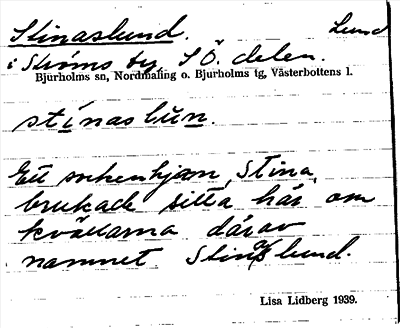 Stinaslund. Lund
i Ströms by SÖ. delen.
Bjurholms sn, Nordmaling o. Bjurholms tg, Västerbottens l.
stinaslun.
Ett sockenhjon, Stina,
brukade sitta här om
kvällarna därav
namnet Stinaslund.
Lisa Lidberg 1939.